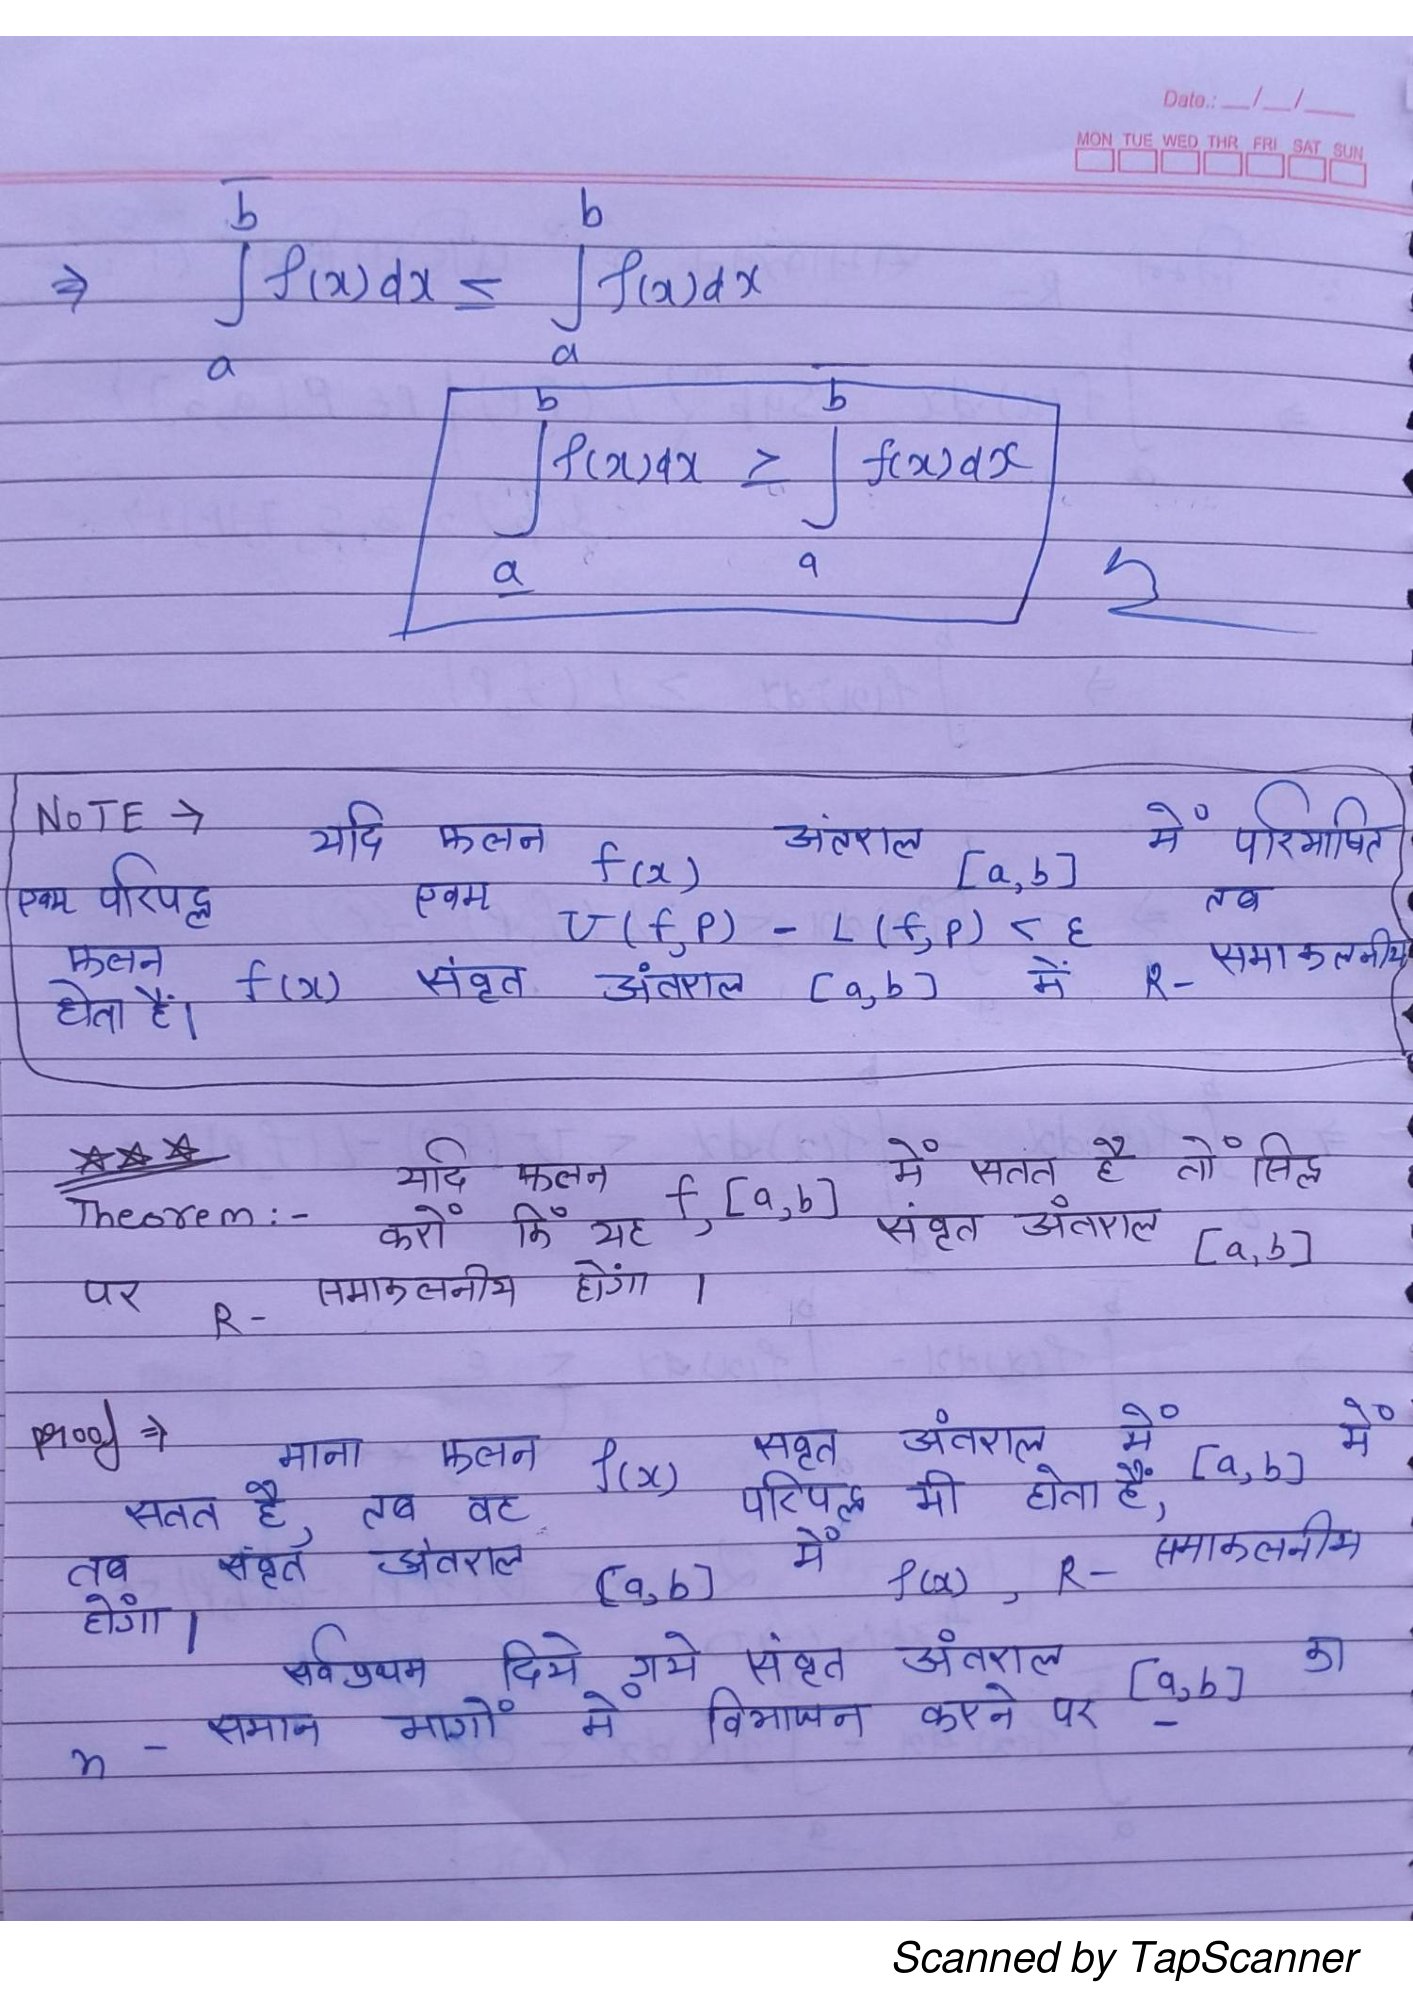 Date.: __/__/___
MON TUE WED THR FRI SAT SUN
⇒ ∫ₐ^b̅ f(x)dx ≤ ∫ₐ^b f(x)dx
∫_a̲^b f(x)dx ≥ ∫ₐ^b̅ f(x)dx
NOTE → यदि फलन f(x) अंतराल [a,b] में परिभाषित
एवम परिपद्ध एवम U(f,P) - L(f,P) < ε तब
फलन f(x) संवृत अंतराल [a,b] में R- समाकलनीय
होता हैं।
☆☆☆
Theorem:- यदि फलन f, [a,b] में सतत है तो सिद्ध
करों किं यह, संवृत अंतराल [a,b]
पर R- समाकलनीय होंगा ।
proof ⇒ माना फलन f(x) सवृत अंतराल में [a,b] में
सतत है, तब वह परिपद्ध भी होता हैं,
तब संवृत अंतराल [a,b] में f(x), R- समाकलनीय
होंगा ।
सर्वप्रथम दिये गये संवृत अंतराल [a,b] का
n - समान भागों में विभाजन करने पर -
Scanned by TapScanner